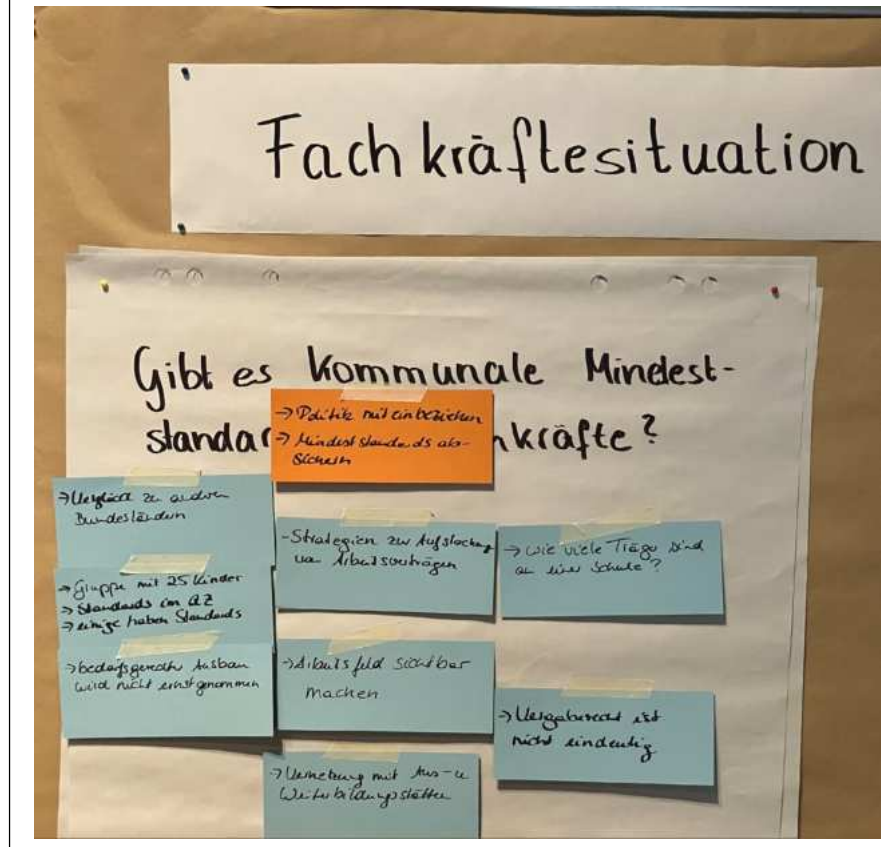 Fachkräftesituation
Gibt es kommunale Mindest-
standar nkräfte?
→ Politik mit einbeziehen
→ Mindeststandards ab-
sichern
→ Vergleich zu anderen
Bundesländern
→ Gruppe mit 25 Kinder
→ Standards im QZ
→ einige haben Standards
→ bedarfsgerechter Ausbau
wird nicht ernstgenommen
- Strategien zur Aufstockung
von Arbeitsverträgen
→ Arbeitsfeld sichtbar
machen
→ Vernetzung mit Aus- u
Weiterbildungsstätten
→ Wie viele Träger sind
an einer Schule?
→ Vergaberecht ist
nicht eindeutig